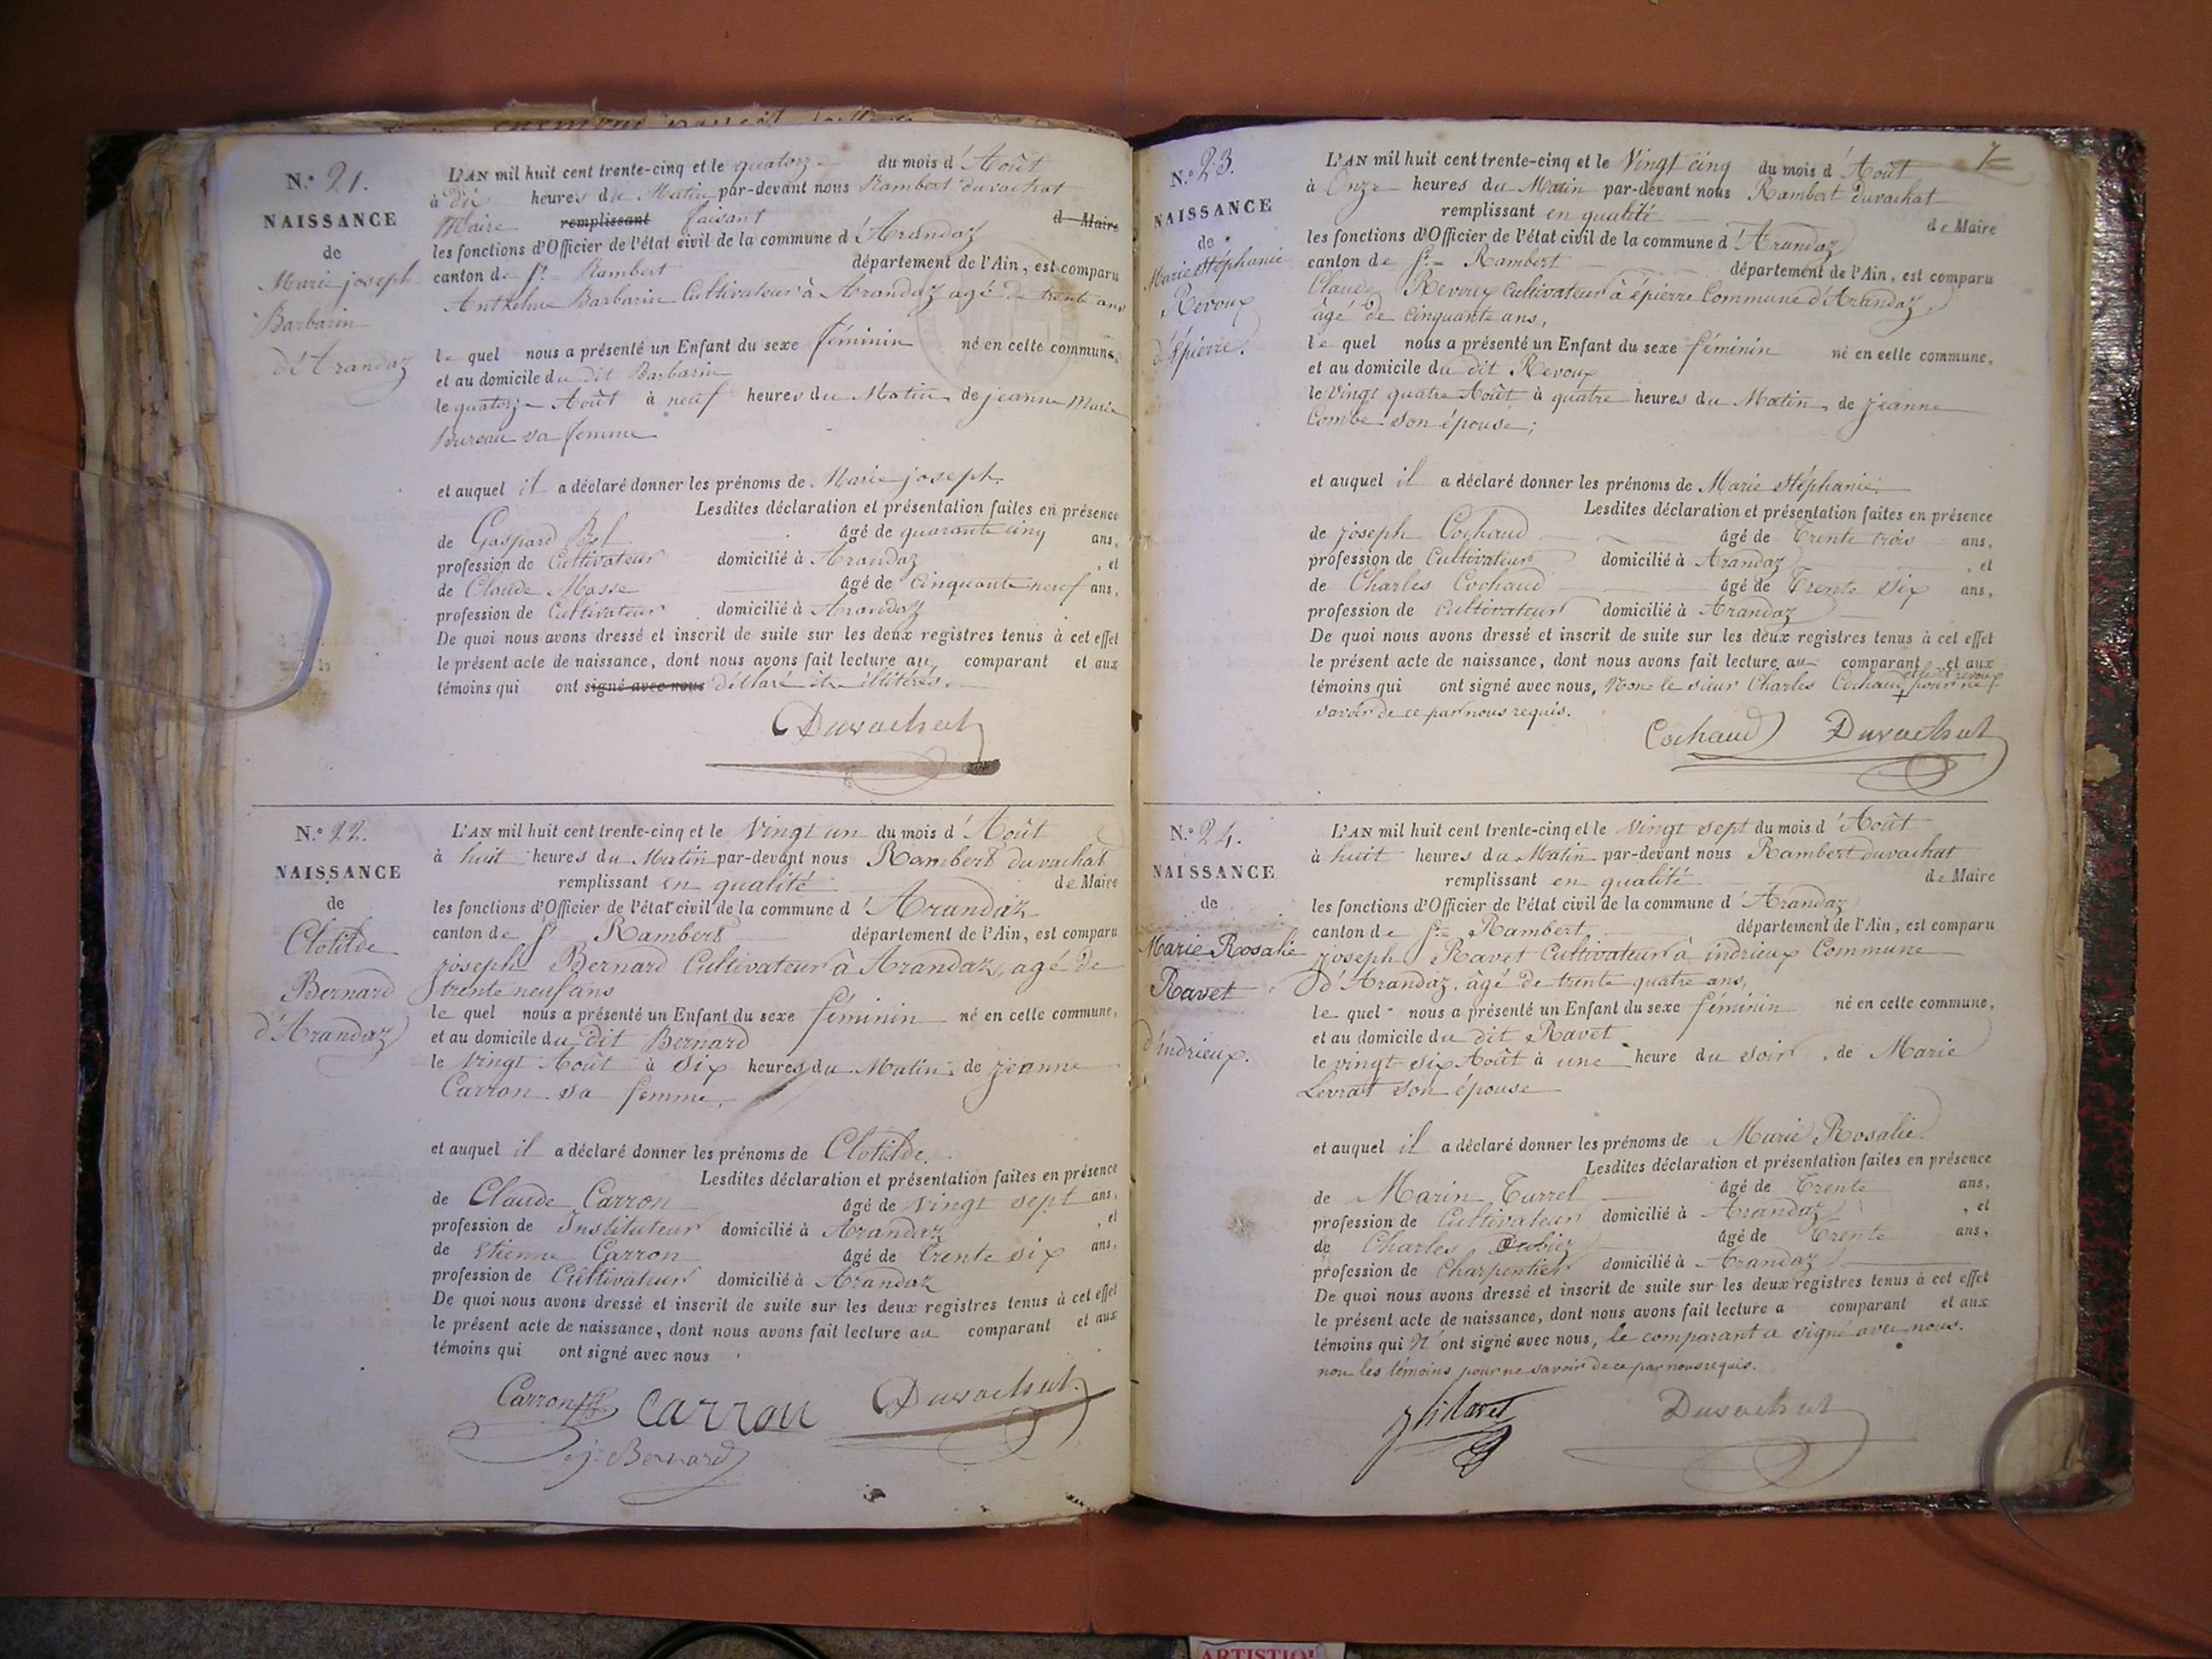 N.° 21.
NAISSANCE
de
Marie joseph
Barbarin
d'Arandaz
L'AN mil huit cent trente-cinq et le quatorze du mois d'Août
à dix heures du Matin par-devant nous Rambert duvachat
Maire remplissant faisant de Maire
les fonctions d'Officier de l'état civil de la commune d'Arandaz
canton de St. Rambert département de l'Ain, est comparu
Anthelme Barbarin Cultivateur à Arandaz agé de trente ans
le quel nous a présenté un Enfant du sexe féminin né en cette commune,
et au domicile du dit Barbarin
le quatorze Août à neuf heures du Matin de jeanne Marie
Bureau sa femme
et auquel il a déclaré donner les prénoms de Marie joseph.
Lesdites déclaration et présentation faites en présence
de Gaspard Bel âgé de quarante cinq ans,
profession de Cultivateur domicilié à Arandaz, et
de Claude Masse âgé de cinquante neuf ans,
profession de Cultivateur domicilié à Arandaz
De quoi nous avons dressé et inscrit de suite sur les deux registres tenus à cet effet
le présent acte de naissance, dont nous avons fait lecture au comparant et aux
témoins qui ont signé avec nous déclaré être illitérés.
Duvachat
N.° 22.
NAISSANCE
de
Clotilde
Bernard
d'Arandaz
L'AN mil huit cent trente-cinq et le Vingt un du mois d'Août
à huit heures du Matin par-devant nous Rambert duvachat
remplissant en qualité de Maire
les fonctions d'Officier de l'état civil de la commune d'Arandaz
canton de St. Rambert département de l'Ain, est comparu
joseph Bernard Cultivateur à Arandaz, agé de
trente neuf ans
le quel nous a présenté un Enfant du sexe féminin né en cette commune,
et au domicile du dit Bernard
le vingt Août à six heures du Matin de jeanne
Carron sa femme,
et auquel il a déclaré donner les prénoms de Clotilde.
Lesdites déclaration et présentation faites en présence
de Claude Carron âgé de vingt sept ans,
profession de Instituteur domicilié à Arandaz, et
de Etienne Carron âgé de trente six ans,
profession de Cultivateur domicilié à Arandaz
De quoi nous avons dressé et inscrit de suite sur les deux registres tenus à cet effet
le présent acte de naissance, dont nous avons fait lecture au comparant et aux
témoins qui ont signé avec nous
Carron Carron Duvachat
j. Bernard
7
N.° 23.
NAISSANCE
de
Marie Stéphanie
Revoux
d'épierre.
L'AN mil huit cent trente-cinq et le Vingt cinq du mois d'Août
à Onze heures du Matin par-devant nous Rambert Duvachat
remplissant en qualité de Maire
les fonctions d'Officier de l'état civil de la commune d'Arandaz
canton de St. Rambert département de l'Ain, est comparu
Claude Revoux Cultivateur à épierre Commune d'Arandaz,
âgé de cinquante ans,
le quel nous a présenté un Enfant du sexe féminin né en cette commune,
et au domicile du dit Revoux
le Vingt quatre Août à quatre heures du Matin, de jeanne
Combe son épouse;
et auquel il a déclaré donner les prénoms de Marie Stéphanie.
Lesdites déclaration et présentation faites en présence
de joseph Cochaud âgé de Trente trois ans,
profession de Cultivateur domicilié à Arandaz, et
de Charles Cochaud âgé de Trente Six ans,
profession de Cultivateur domicilié à Arandaz
De quoi nous avons dressé et inscrit de suite sur les deux registres tenus à cet effet
le présent acte de naissance, dont nous avons fait lecture au comparant et aux
témoins qui ont signé avec nous, Non le sieur Charles Cochaud pour ne
savoir de ce par nous requis.
Cochaud Duvachat
N.° 24.
NAISSANCE
de
Marie Rosalie
Ravet
d'indrieux.
L'AN mil huit cent trente-cinq et le Vingt sept du mois d'Août
à huit heures du Matin par-devant nous Rambert duvachat
remplissant en qualité de Maire
les fonctions d'Officier de l'état civil de la commune d'Arandaz
canton de St. Rambert département de l'Ain, est comparu
joseph Ravet Cultivateur à indrieux Commune
d'Arandaz, âgé de trente quatre ans,
le quel nous a présenté un Enfant du sexe féminin né en cette commune,
et au domicile du dit Ravet
le vingt six Août à une heure du soir, de Marie
Levrat son épouse
et auquel il a déclaré donner les prénoms de Marie Rosalie.
Lesdites déclaration et présentation faites en présence
de Marin Turrel âgé de Trente ans,
profession de Cultivateur domicilié à Arandaz, et
de Charles Dubiez âgé de Trente ans,
profession de Charpentier domicilié à Arandaz
De quoi nous avons dressé et inscrit de suite sur les deux registres tenus à cet effet
le présent acte de naissance, dont nous avons fait lecture a comparant et aux
témoins qui N'ont signé avec nous, le comparant a signé avec nous.
non les témoins pour ne savoir de ce par nous requis.
Ravet Duvachat